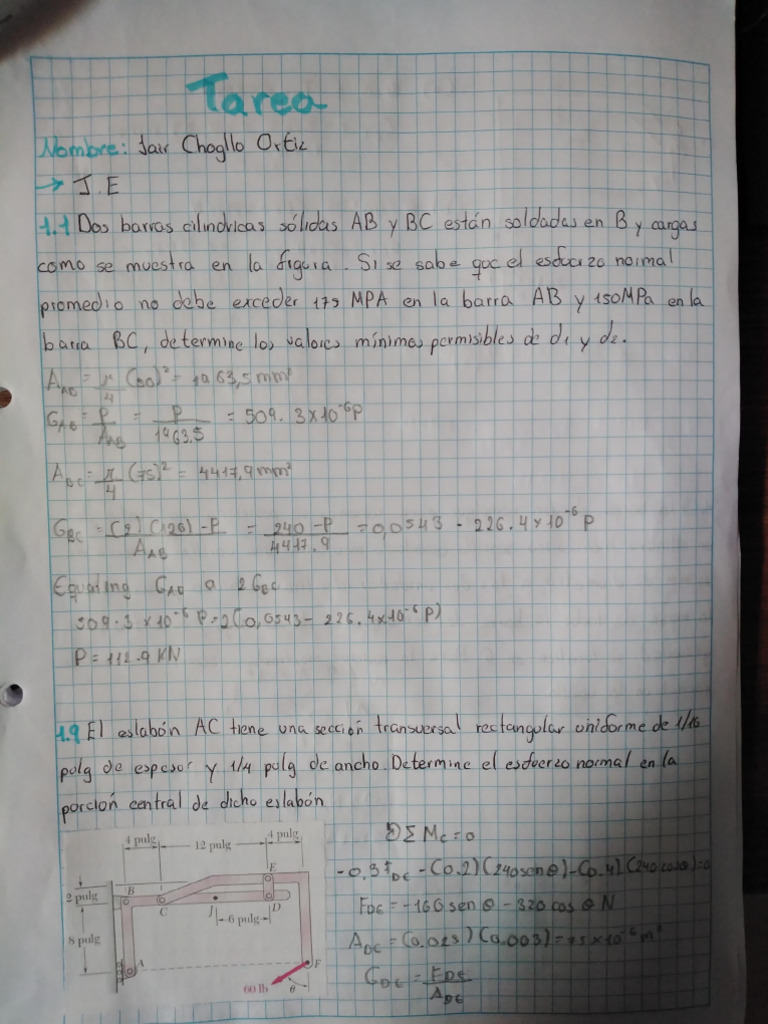 Tarea
Nombre: Jair Chogllo Ortiz
→ J.E
1.1 Dos barras cilindricas sólidas AB y BC están soldadas en B y cargas
como se muestra en la figura. Si se sabe que el esfuerzo normal
promedio no debe exceder 175 MPA en la barra AB y 150MPa en la
barra BC, determine los valores mínimos permisibles de d₁ y d₂.
A_AB = π/4 (50)² = 1963,5 mm²
σ_AB = P/A_AB = P/1963.5 = 509.3x10⁻⁶P
A_BC = π/4 (75)² = 4417,9 mm²
σ_BC = (2)(120)-P/A_AB = 240-P/4417.9 = 0,0543 - 226.4x10⁻⁶ P
Equating σ_AB a 2σ_BC
509.3 x10⁻⁶ P = 2(0,0543 - 226.4x10⁻⁶ P)
P = 112.9 KN
1.9 El eslabón AC tiene una sección transversal rectangular uniforme de 1/16
pulg de espesor y 1/4 pulg de ancho. Determine el esfuerzo normal en la
porción central de dicho eslabón
4 pulg
12 pulg
4 pulg
2 pulg
8 pulg
B
C
J
6 pulg
E
D
A
F
60 lb
θ
ΣMc=0
-0.3F_DC - (0.2)(240senθ) - (0.4)(240cosθ)=0
F_DC = -160 sen θ - 320 cos θ N
A_DC = (0.025)(0.003) = 75x10⁻⁶ m²
σ_DC = F_DC/A_DC